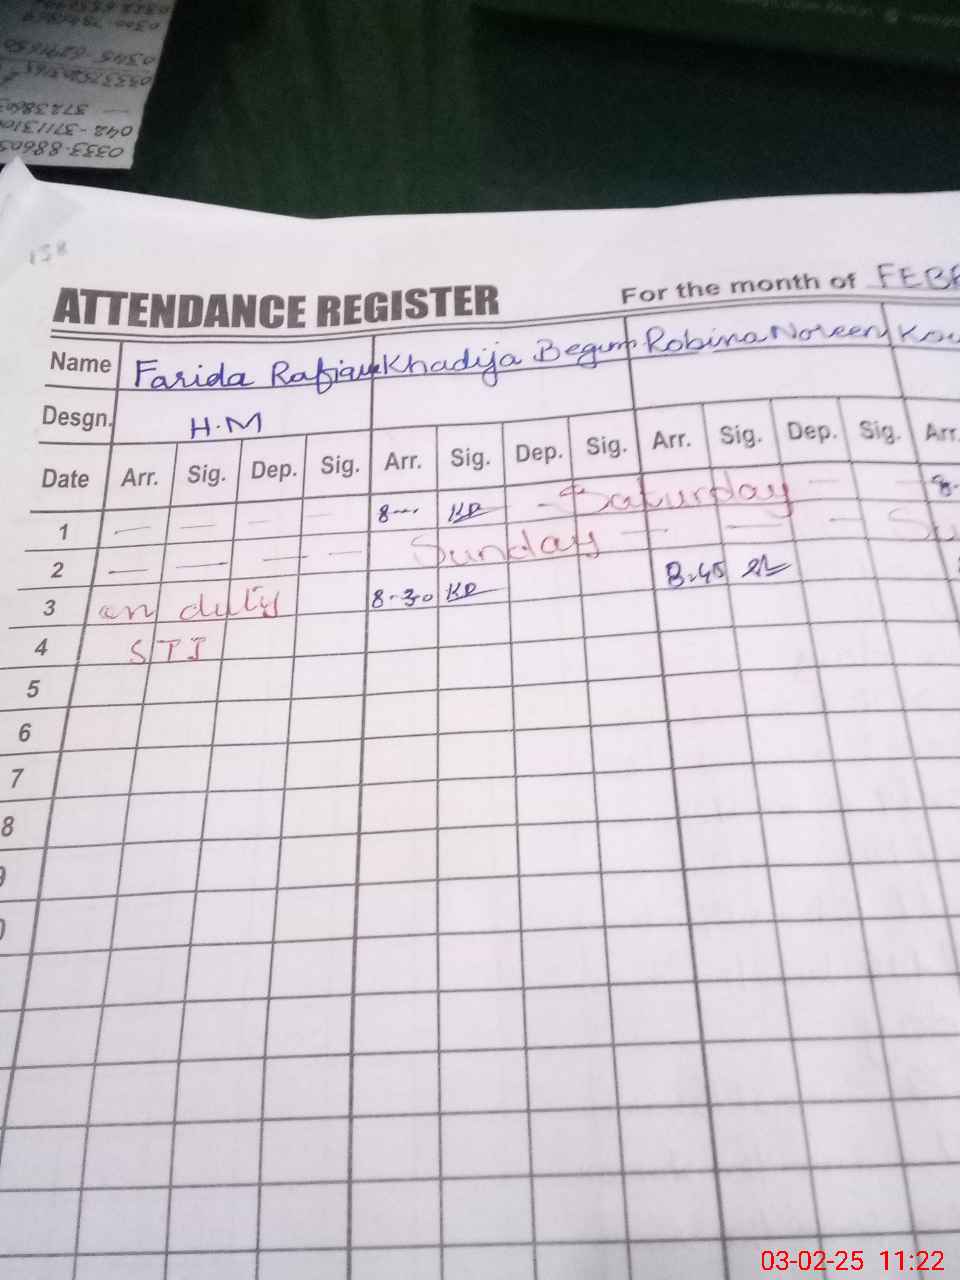 042-3711310
0333-88603
ATTENDANCE REGISTER For the month of FEBR
Name Farida Rafique Khadija Begum Robina Noreen Kou
Desgn. H.M
Date Arr. Sig. Dep. Sig. Arr. Sig. Dep. Sig. Arr. Sig. Dep. Sig. Arr.
1 — — — — 8-- KB - Saturday — - 8-
2 — — — — Sunday — — — Su
3 on duty 8-30 KB 8.45
4 STI
5
6
7
8
03-02-25 11:22